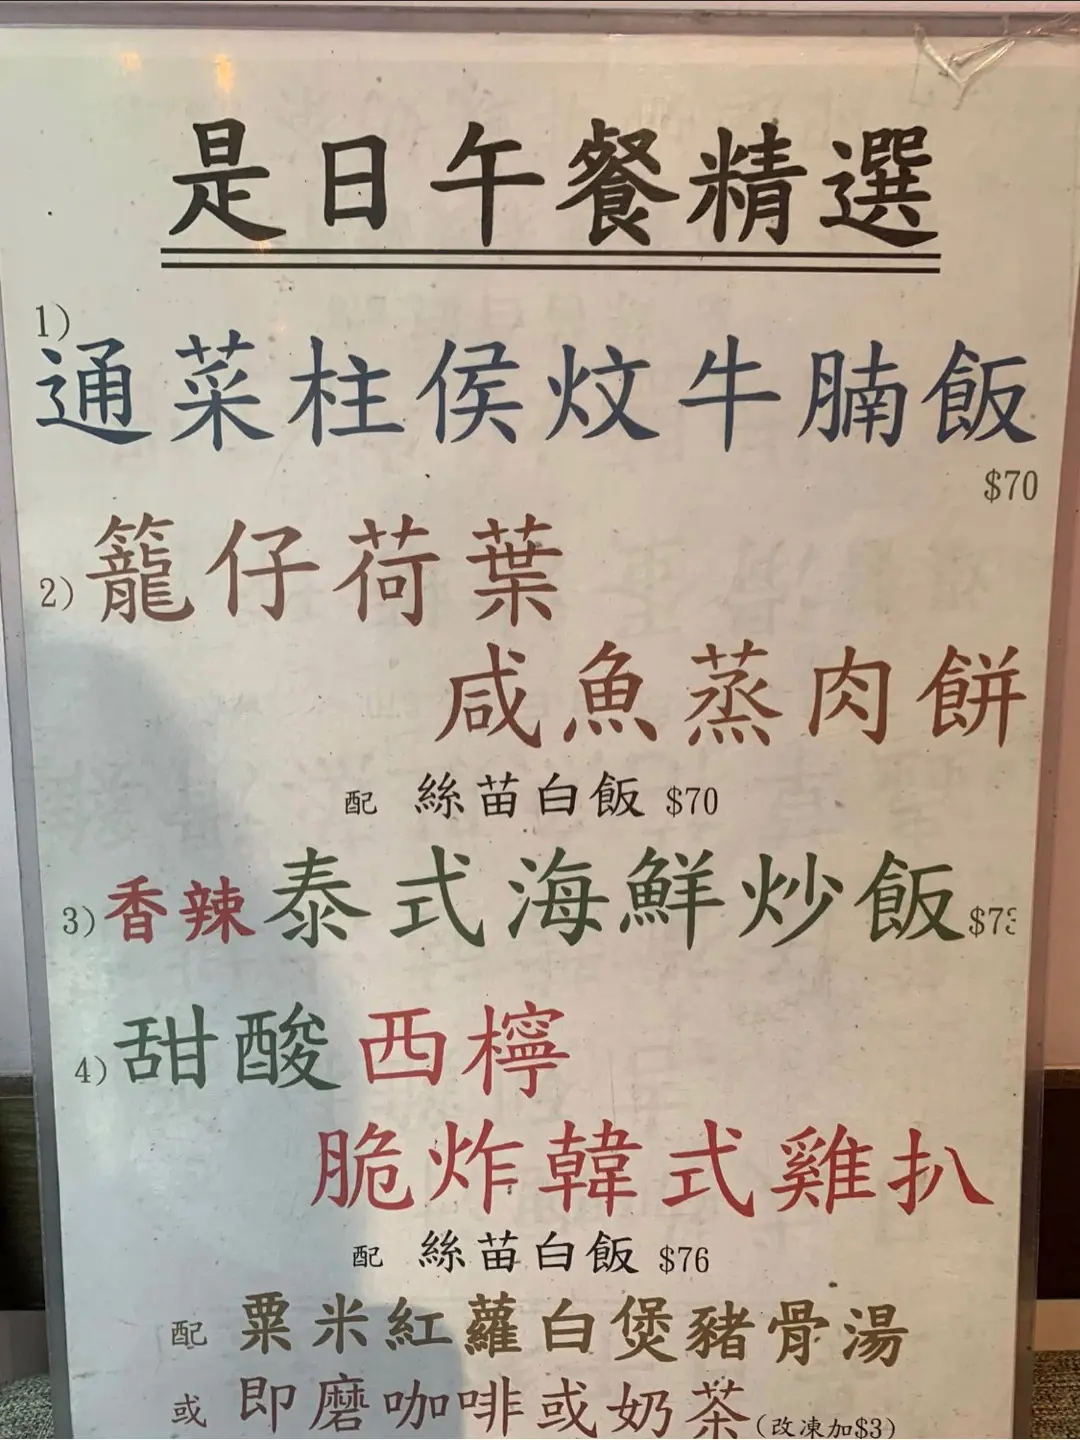 是日午餐精選
1)
通菜柱侯炆牛腩飯
$70
2) 籠仔荷葉
咸魚蒸肉餅
配 絲苗白飯 $70
3) 香辣泰式海鮮炒飯 $73
4) 甜酸西檸
脆炸韓式雞扒
配 絲苗白飯 $76
配 粟米紅蘿白煲豬骨湯
或 即磨咖啡或奶茶(改凍加$3)